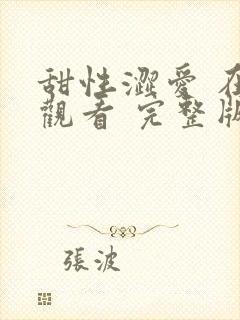 甜性澀愛 在
觀看 完整版
張波